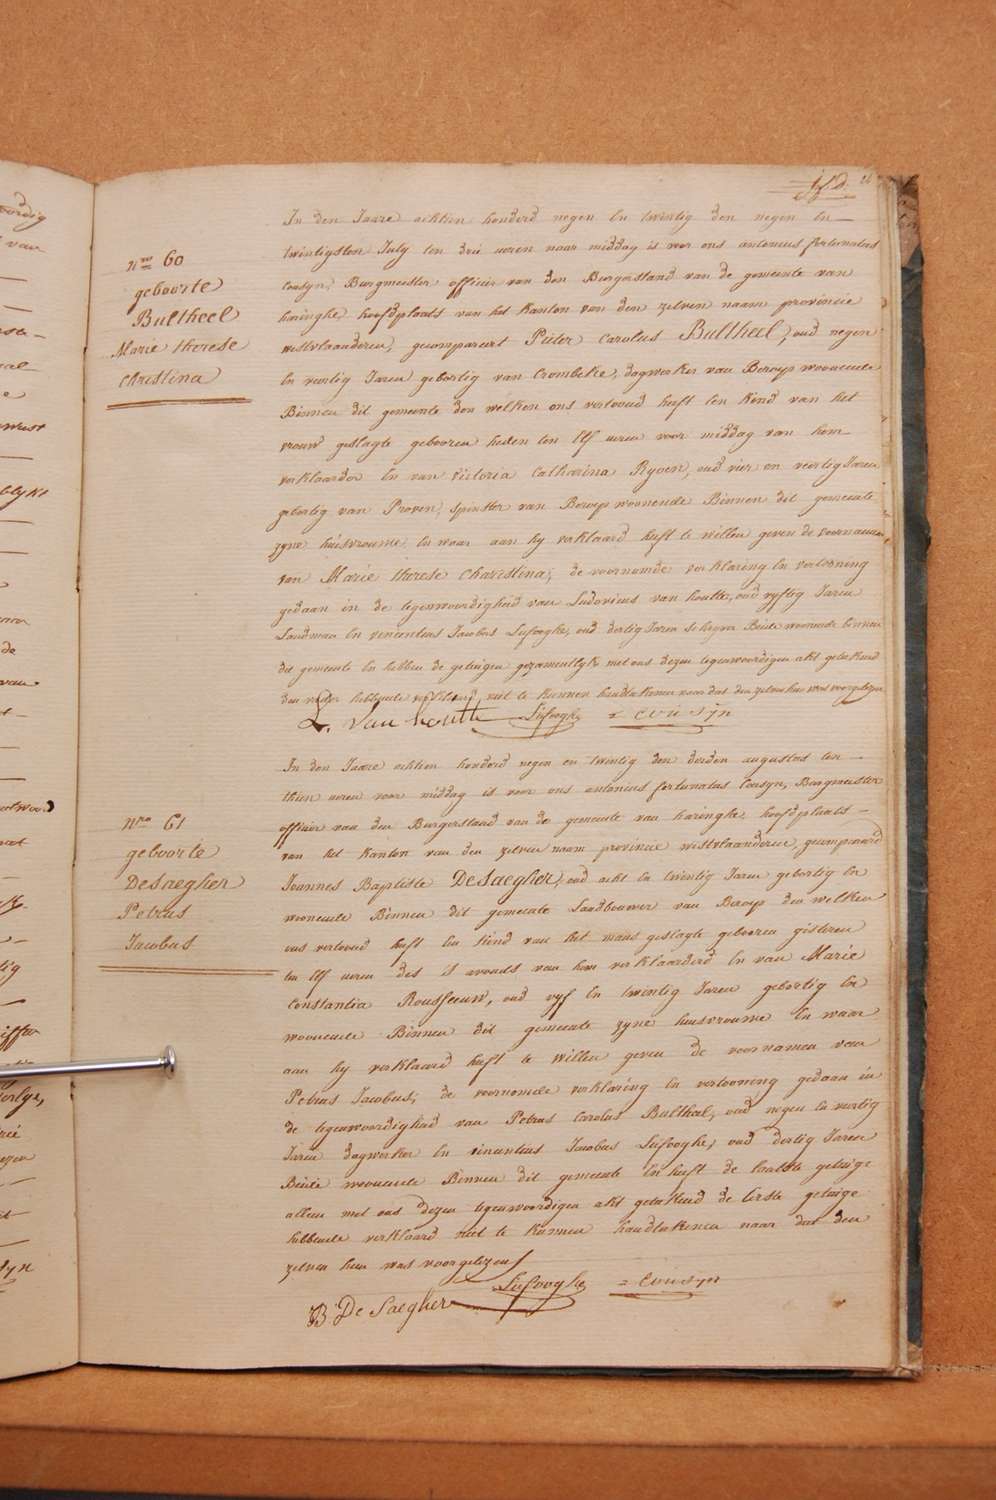 26
nro 60
geboorte
Bultheel
Marie therese
Christina
In den Jaare achtien honderd negen en twintig den negen en
twintigsten July ten drie uren naar middag is voor ons antonius fortunatus
Cousyn, Burgmeester officier van den Burgerstand van de gemeente van
haringhe, hoofdplaats van het kanton van den zelven naam provincie
westvlaanderen, gecompareert Pieter Carolus Bultheel, oud negen
en veertig Jaren geboortig van Crombeke, dagwerker van Beroep woonende
Binnen dit gemeente den welken ons vertoond heeft een kind van het
vrouw geslagte gebooren heden ten elf uren voor middag van hem
verklaarder en van victoria Catharina Ryoen, oud vier en veertig Jaren
geboortig van Proven, spinster van Beroep woonende Binnen dit gemeente
zyne huisvrouwe, en waar aan hy verklaard heeft te willen geven de voornamen
van Marie therese Christina, de voornomde verklaring en vertooning
gedaan in de tegenwoordigheid van Ludovicus van houtte, oud vyftig Jaren
Landman en vincentius Jacobus Lefooghe, oud dertig Jaren schryver Beide woonende binnen
dit gemeente en hebben de getuigen gezamentlyk met ons dezen tegenwoordigen akt geteekend
den vader hebbende verklaard niet te kunnen handteekenen naar dat den zelven hun was voorgelezen
L. Van houtte Lefooghe = cousyn
nro 61
geboorte
DeSaegher
Petrus
Jacobus
In den Jaare achtien honderd negen en twintig den derden augustus ten
thien uren voor middag is voor ons antonius fortunatus Cousyn, Burgmeester
officier van den Burgerstand van de gemeente van haringhe, hoofdplaats
van het kanton van den zelven naam provincie westvlaanderen, gecompareerd
Joannes Baptiste DeSaegher, oud acht en twintig Jaren geboortig en
woonende Binnen dit gemeente Landbouwer van Beroep den welken
ons vertoond heeft een kind van het mans geslagte gebooren gisteren
ten elf uren des s avonds van hem verklaarderd en van Marie
Constantia Rousseeuw, oud vyf en twintig Jaren geboortig en
woonende Binnen dit gemeente zyne huisvrouwe en waar
aan hy verklaard heeft te willen geven de voornamen van
Petrus Jacobus, de voornomde verklaring en vertooning gedaan in
de tegenwoordighad van Petrus Carolus Bulthal, oud negen en veertig
Jaren dagwerker en vincentius Jacobus Lefooghe, oud dertig Jaren
Beide woonende Binnen dit gemeente en heeft de laatste getuige
alleen met ons dezen tegenwoordigen akt geteekend de eerste getuige
hebbende verklaard niet te kunnen handteekenen naar dat den
zelven hun was voorgelezen
B. De Saegher Lefooghe = cousyn